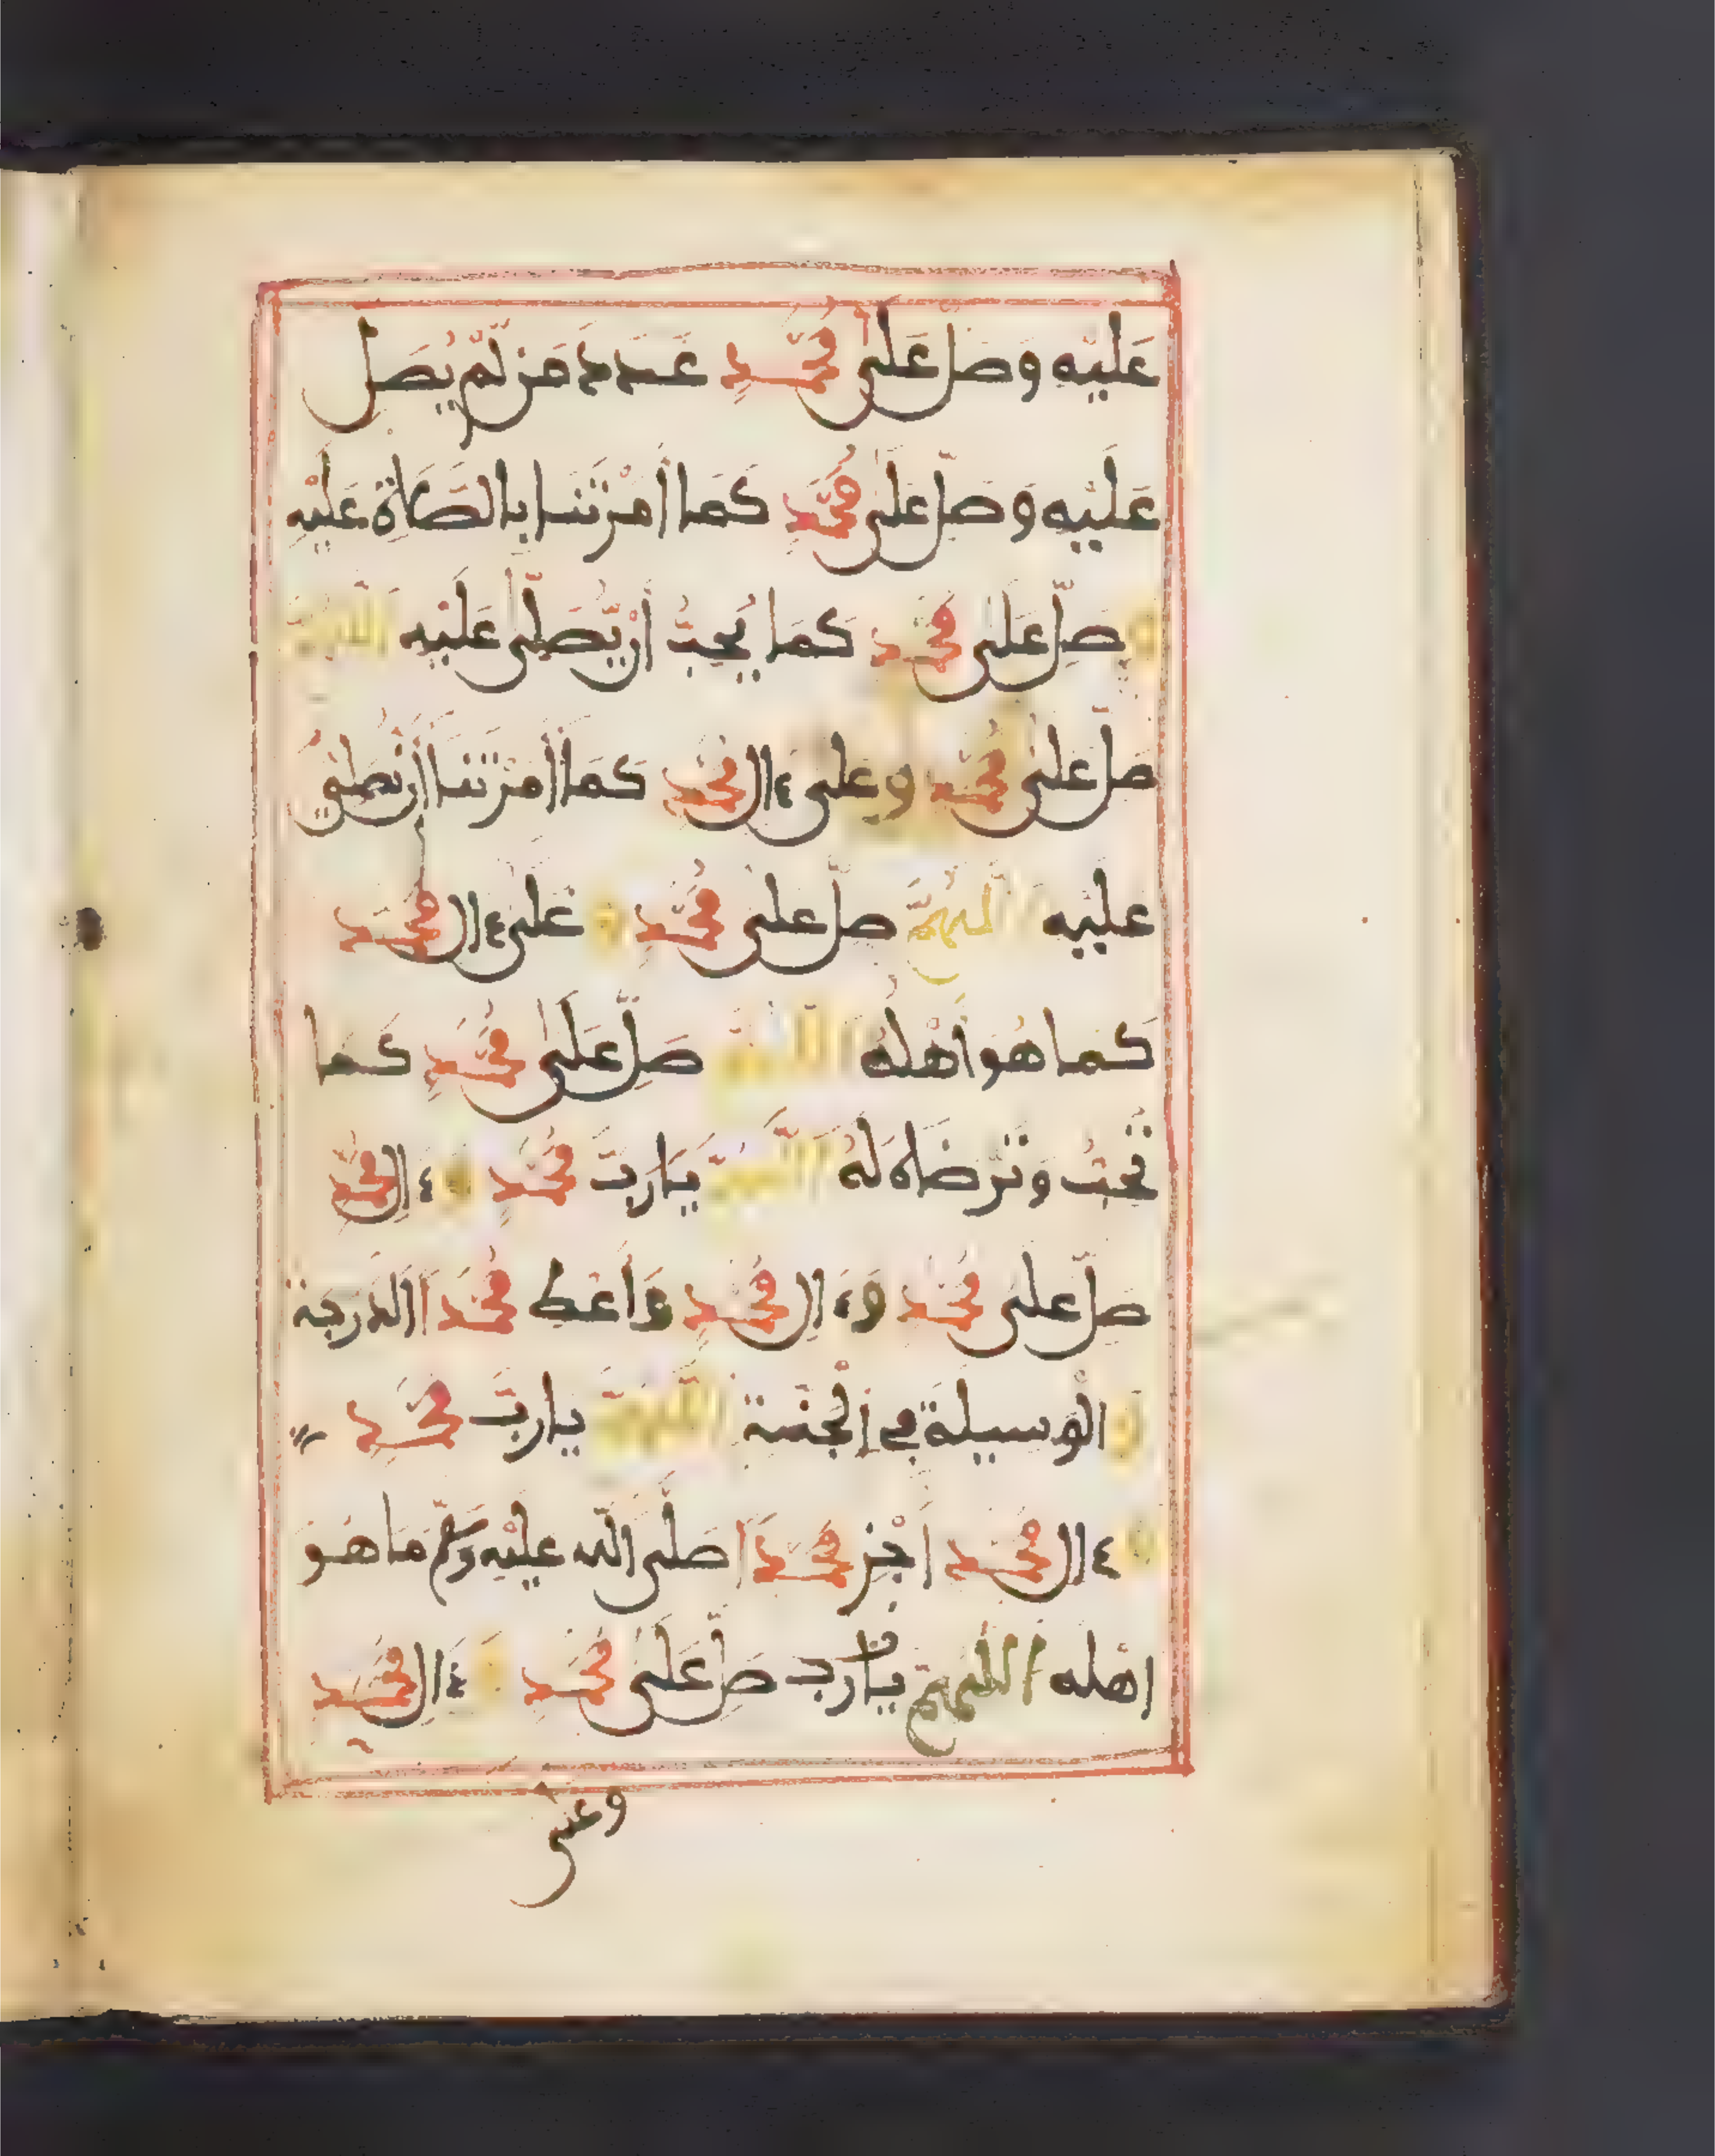 عَلَيْهِ وَصَلِّ عَلَى مُحَمَّدٍ عَدَدَ مَن لَّمْ يُصَلِّ
عَلَيْهِ وَصَلِّ عَلَى مُحَمَّدٍ كَمَا أَمَرْتَنَا بِالصَّلَاةِ عَلَيْهِ
وَصَلِّ عَلَى مُحَمَّدٍ كَمَا يُحِبُّ أَنْ يُّصَلَّى عَلَيْهِ اللَّهُمَّ
صَلِّ عَلَى مُحَمَّدٍ وَعَلَى ءَالِ مُحَمَّدٍ كَمَا أَمَرْتَنَا أَن نُّصَلِّيَ
عَلَيْهِ اللَّهُمَّ صَلِّ عَلَى مُحَمَّدٍ وَعَلَى ءَالِ مُحَمَّدٍ
كَمَا هُوَ أَهْلُهُ اللَّهُمَّ صَلِّ عَلَى مُحَمَّدٍ كَمَا
تُحِبُّ وَتَرْضَاهُ لَهُ اللَّهُمَّ يَا رَبَّ مُحَمَّدٍ وَءَالِ مُحَمَّدٍ
صَلِّ عَلَى مُحَمَّدٍ وَءَالِ مُحَمَّدٍ وَأَعْطِ مُحَمَّدًا الدَّرَجَةَ
وَالْوَسِيلَةَ فِي الْجَنَّةِ اللَّهُمَّ يَا رَبَّ مُحَمَّدٍ
وَءَالِ مُحَمَّدٍ اجْزِ مُحَمَّدًا صَلَّى اللَّهُ عَلَيْهِ وَسَلَّمَ مَا هُوَ
أَهْلُهُ اللَّهُمَّ يَا رَبِّ صَلِّ عَلَى مُحَمَّدٍ وَءَالِ مُحَمَّدٍ
وعلى